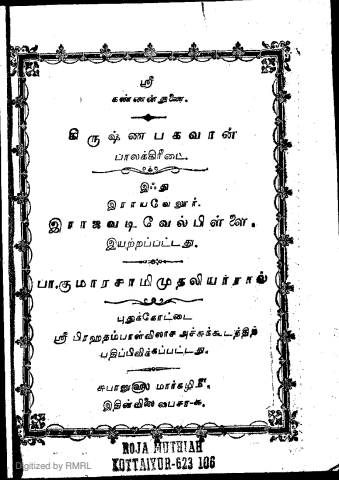 ஸ்ரீ
கண்ணன்துணை.
கிருஷ்ணபகவான்
பாலக்கிரீடை.
இஃது
இராயவேலூர்.
இராஜவடிவேல்பிள்ளை.
இயற்றப்பட்டது.
பா.குமாரசாமிமுதலியார்ரால்
புதுக்கோட்டை
ஸ்ரீ பிரஹதம்பாள்விலாச அச்சுக்கூடத்திற்
பதிப்பிவிக்கப்பட்டது.
சுபானுஹு மார்கழிமீ
இதின்விலை பைசா-௬.
ROJA MUTHIAH
KOTTAIYUR-623 106
Digitized by RMRL